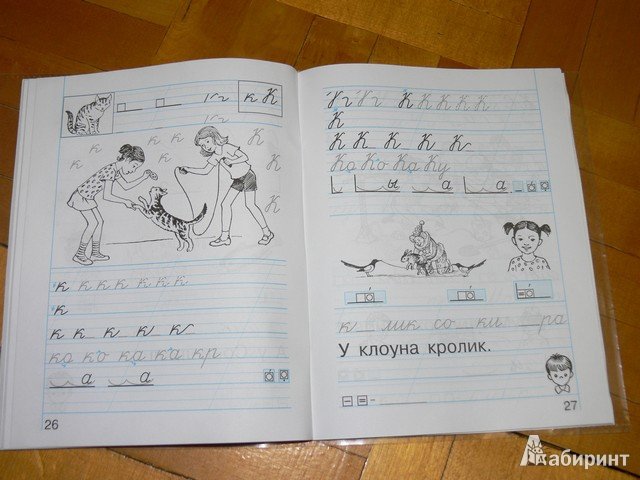 к К
К К К К К К
К
К К К К К
Ка Ко Ка Ку
ы а а
к к к к к к к
к
к к к к к
ка ко ка ка кр
а а
к лик со ки ра
У клоуна кролик.
26
27
Лабиринт